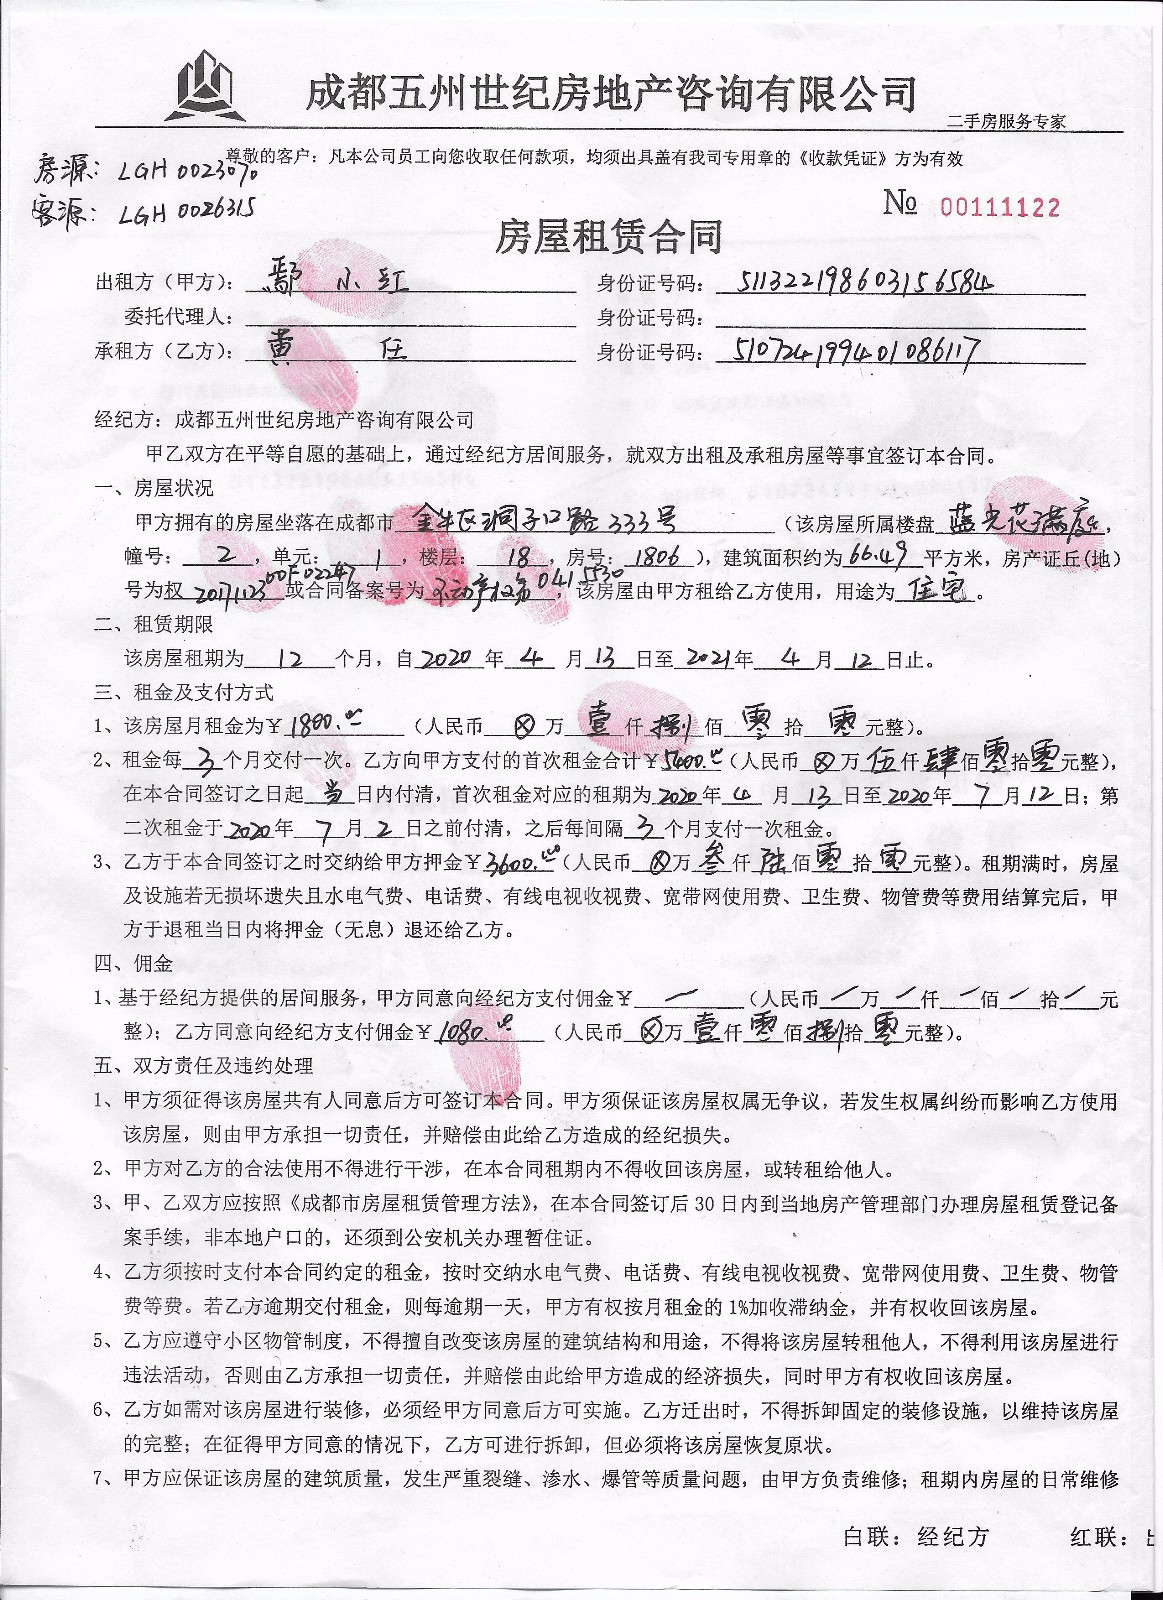 成都五州世纪房地产咨询有限公司
二手房服务专家
尊敬的客户：凡本公司员工向您收取任何款项，均须出具盖有我司专用章的《收款凭证》方为有效
房源：LGH 0023070
客源：LGH 0026315
№ 00111122
房屋租赁合同
出租方（甲方）：鄢小红 身份证号码：511322198603156584
委托代理人： 身份证号码：
承租方（乙方）：黄任 身份证号码：510724199401086117
经纪方：成都五州世纪房地产咨询有限公司
甲乙双方在平等自愿的基础上，通过经纪方居间服务，就双方出租及承租房屋等事宜签订本合同。
一、房屋状况
甲方拥有的房屋坐落在成都市金牛区洞子口路333号（该房屋所属楼盘蓝光花满庭，
幢号：2，单元：1，楼层：18，房号：1806），建筑面积约为66.49平方米，房产证丘(地)
号为权2017112300F02247或合同备案号为不动产权第0415530，该房屋由甲方租给乙方使用，用途为住宅。
二、租赁期限
该房屋租期为12个月，自2020年4月13日至2021年4月12日止。
三、租金及支付方式
1、该房屋月租金为￥1800.00（人民币⊗万壹仟捌佰零拾零元整）。
2、租金每3个月交付一次。乙方向甲方支付的首次租金合计￥5400.00（人民币⊗万伍仟肆佰零拾零元整），
在本合同签订之日起当日内付清，首次租金对应的租期为2020年4月13日至2020年7月12日；第
二次租金于2020年7月2日之前付清，之后每间隔3个月支付一次租金。
3、乙方于本合同签订之时交纳给甲方押金￥3600.00（人民币⊗万叁仟陆佰零拾零元整）。租期满时，房屋
及设施若无损坏遗失且水电气费、电话费、有线电视收视费、宽带网使用费、卫生费、物管费等费用结算完后，甲
方于退租当日内将押金（无息）退还给乙方。
四、佣金
1、基于经纪方提供的居间服务，甲方同意向经纪方支付佣金￥／（人民币／万／仟／佰／拾／元
整）；乙方同意向经纪方支付佣金￥1080.00（人民币⊗万壹仟零佰捌拾零元整）。
五、双方责任及违约处理
1、甲方须征得该房屋共有人同意后方可签订本合同。甲方须保证该房屋权属无争议，若发生权属纠纷而影响乙方使用
该房屋，则由甲方承担一切责任，并赔偿由此给乙方造成的经纪损失。
2、甲方对乙方的合法使用不得进行干涉，在本合同租期内不得收回该房屋，或转租给他人。
3、甲、乙双方应按照《成都市房屋租赁管理方法》，在本合同签订后30日内到当地房产管理部门办理房屋租赁登记备
案手续，非本地户口的，还须到公安机关办理暂住证。
4、乙方须按时支付本合同约定的租金，按时交纳水电气费、电话费、有线电视收视费、宽带网使用费、卫生费、物管
费等费。若乙方逾期交付租金，则每逾期一天，甲方有权按月租金的1%加收滞纳金，并有权收回该房屋。
5、乙方应遵守小区物管制度，不得擅自改变该房屋的建筑结构和用途，不得将该房屋转租他人，不得利用该房屋进行
违法活动，否则由乙方承担一切责任，并赔偿由此给甲方造成的经济损失，同时甲方有权收回该房屋。
6、乙方如需对该房屋进行装修，必须经甲方同意后方可实施。乙方迁出时，不得拆卸固定的装修设施，以维持该房屋
的完整；在征得甲方同意的情况下，乙方可进行拆卸，但必须将该房屋恢复原状。
7、甲方应保证该房屋的建筑质量，发生严重裂缝、渗水、爆管等质量问题，由甲方负责维修；租期内房屋的日常维修
白联：经纪方 红联：